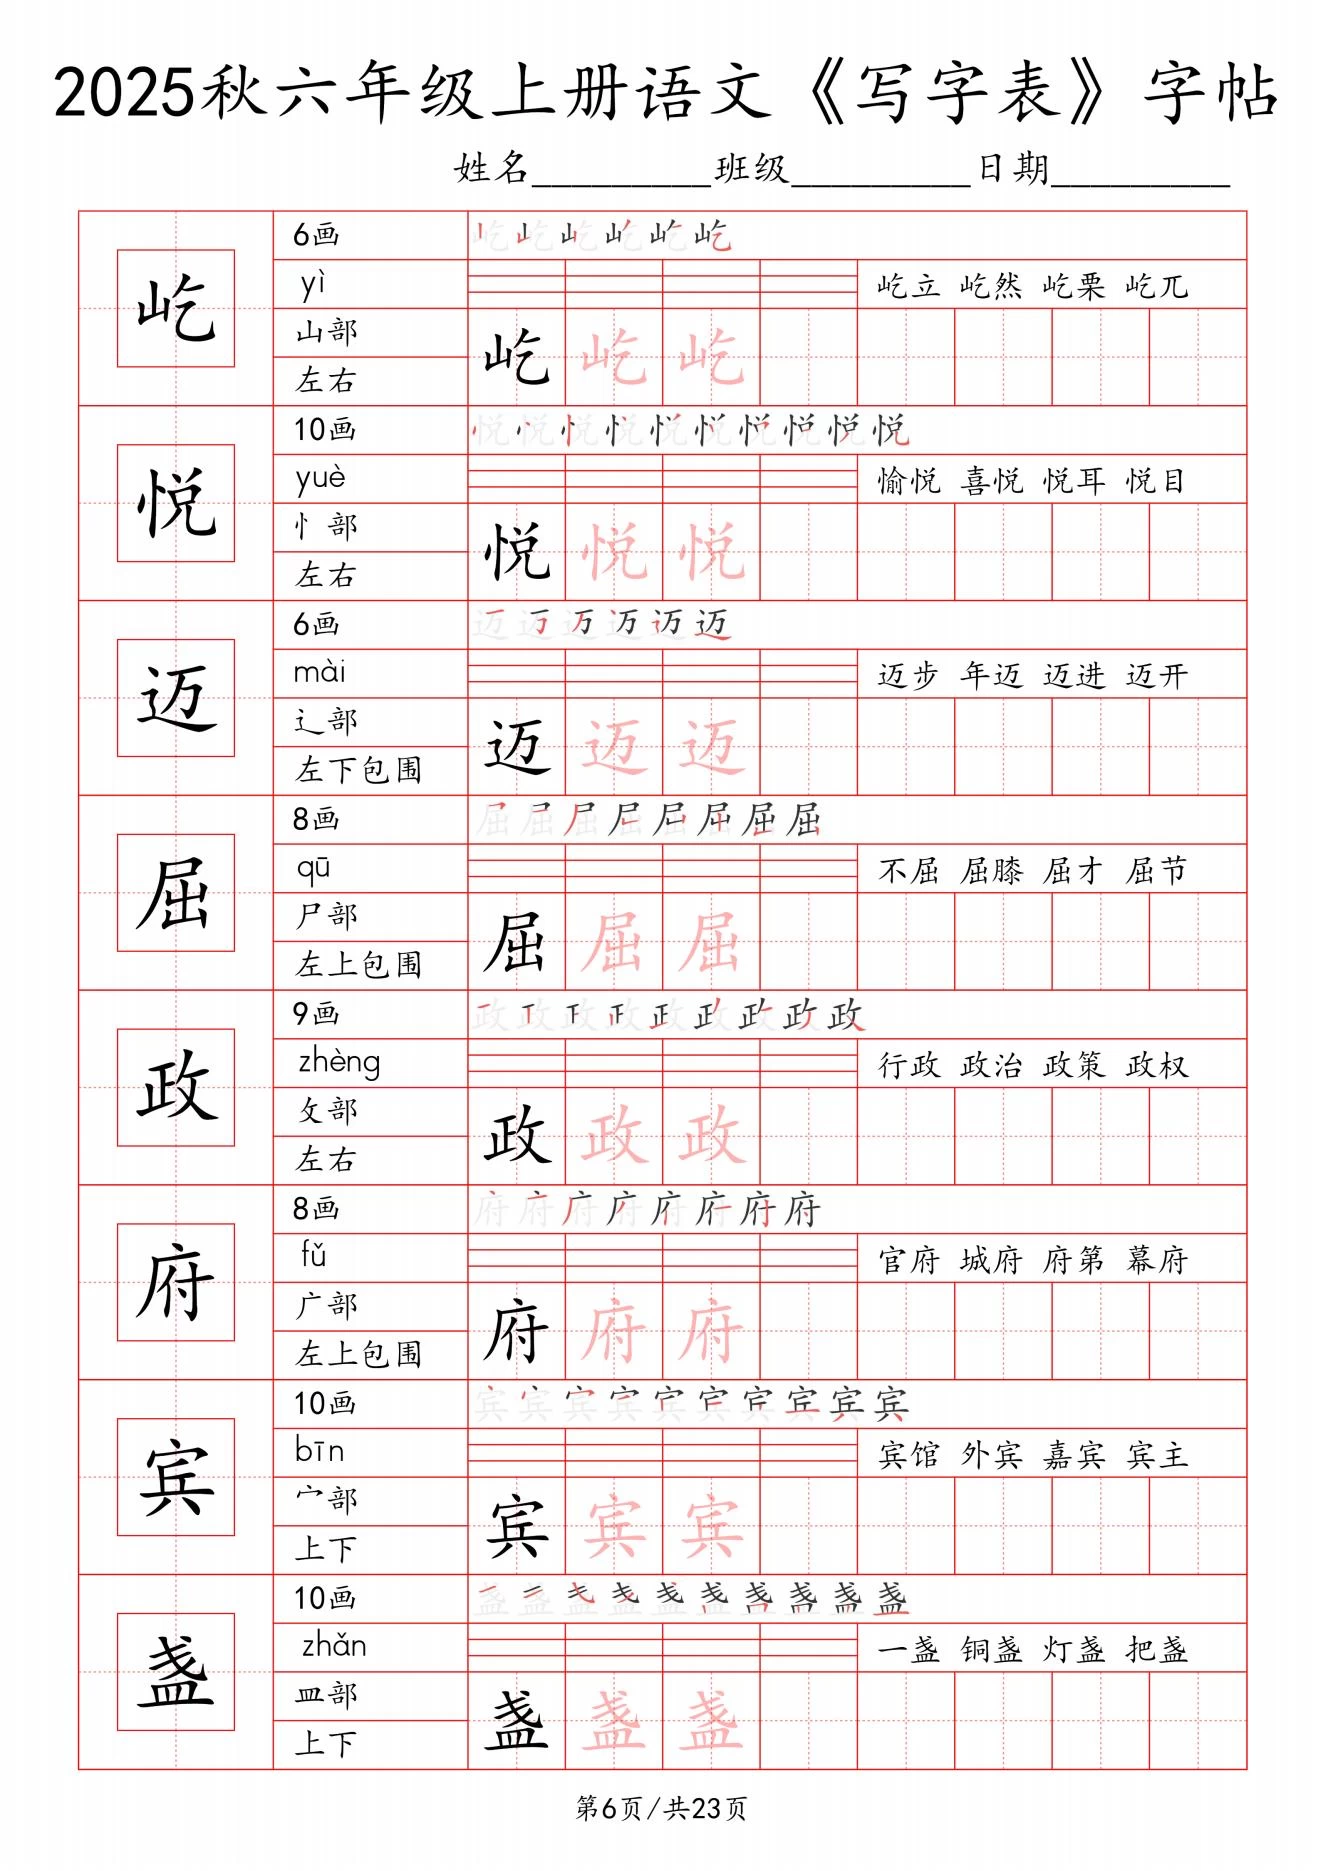 2025秋六年级上册语文《写字表》字帖
姓名_________班级_________日期_________
屹
6画
屹 屹 屹 屹 屹 屹
yì
屹立 屹然 屹栗 屹兀
山部
屹 屹 屹
左右
悦
10画
悦 悦 悦 悦 悦 悦 悦 悦 悦 悦
yuè
愉悦 喜悦 悦耳 悦目
忄部
悦 悦 悦
左右
迈
6画
迈 迈 迈 迈 迈 迈
mài
迈步 年迈 迈进 迈开
辶部
迈 迈 迈
左下包围
屈
8画
屈 屈 屈 屈 屈 屈 屈 屈
qū
不屈 屈膝 屈才 屈节
尸部
屈 屈 屈
左上包围
政
9画
政 政 政 政 政 政 政 政 政
zhèng
行政 政治 政策 政权
攵部
政 政 政
左右
府
8画
府 府 府 府 府 府 府 府
fǔ
官府 城府 府第 幕府
广部
府 府 府
左上包围
宾
10画
宾 宾 宾 宾 宾 宾 宾 宾 宾 宾
bīn
宾馆 外宾 嘉宾 宾主
宀部
宾 宾 宾
上下
盏
10画
盏 盏 盏 盏 盏 盏 盏 盏 盏 盏
zhǎn
一盏 铜盏 灯盏 把盏
皿部
盏 盏 盏
上下
第6页/共23页